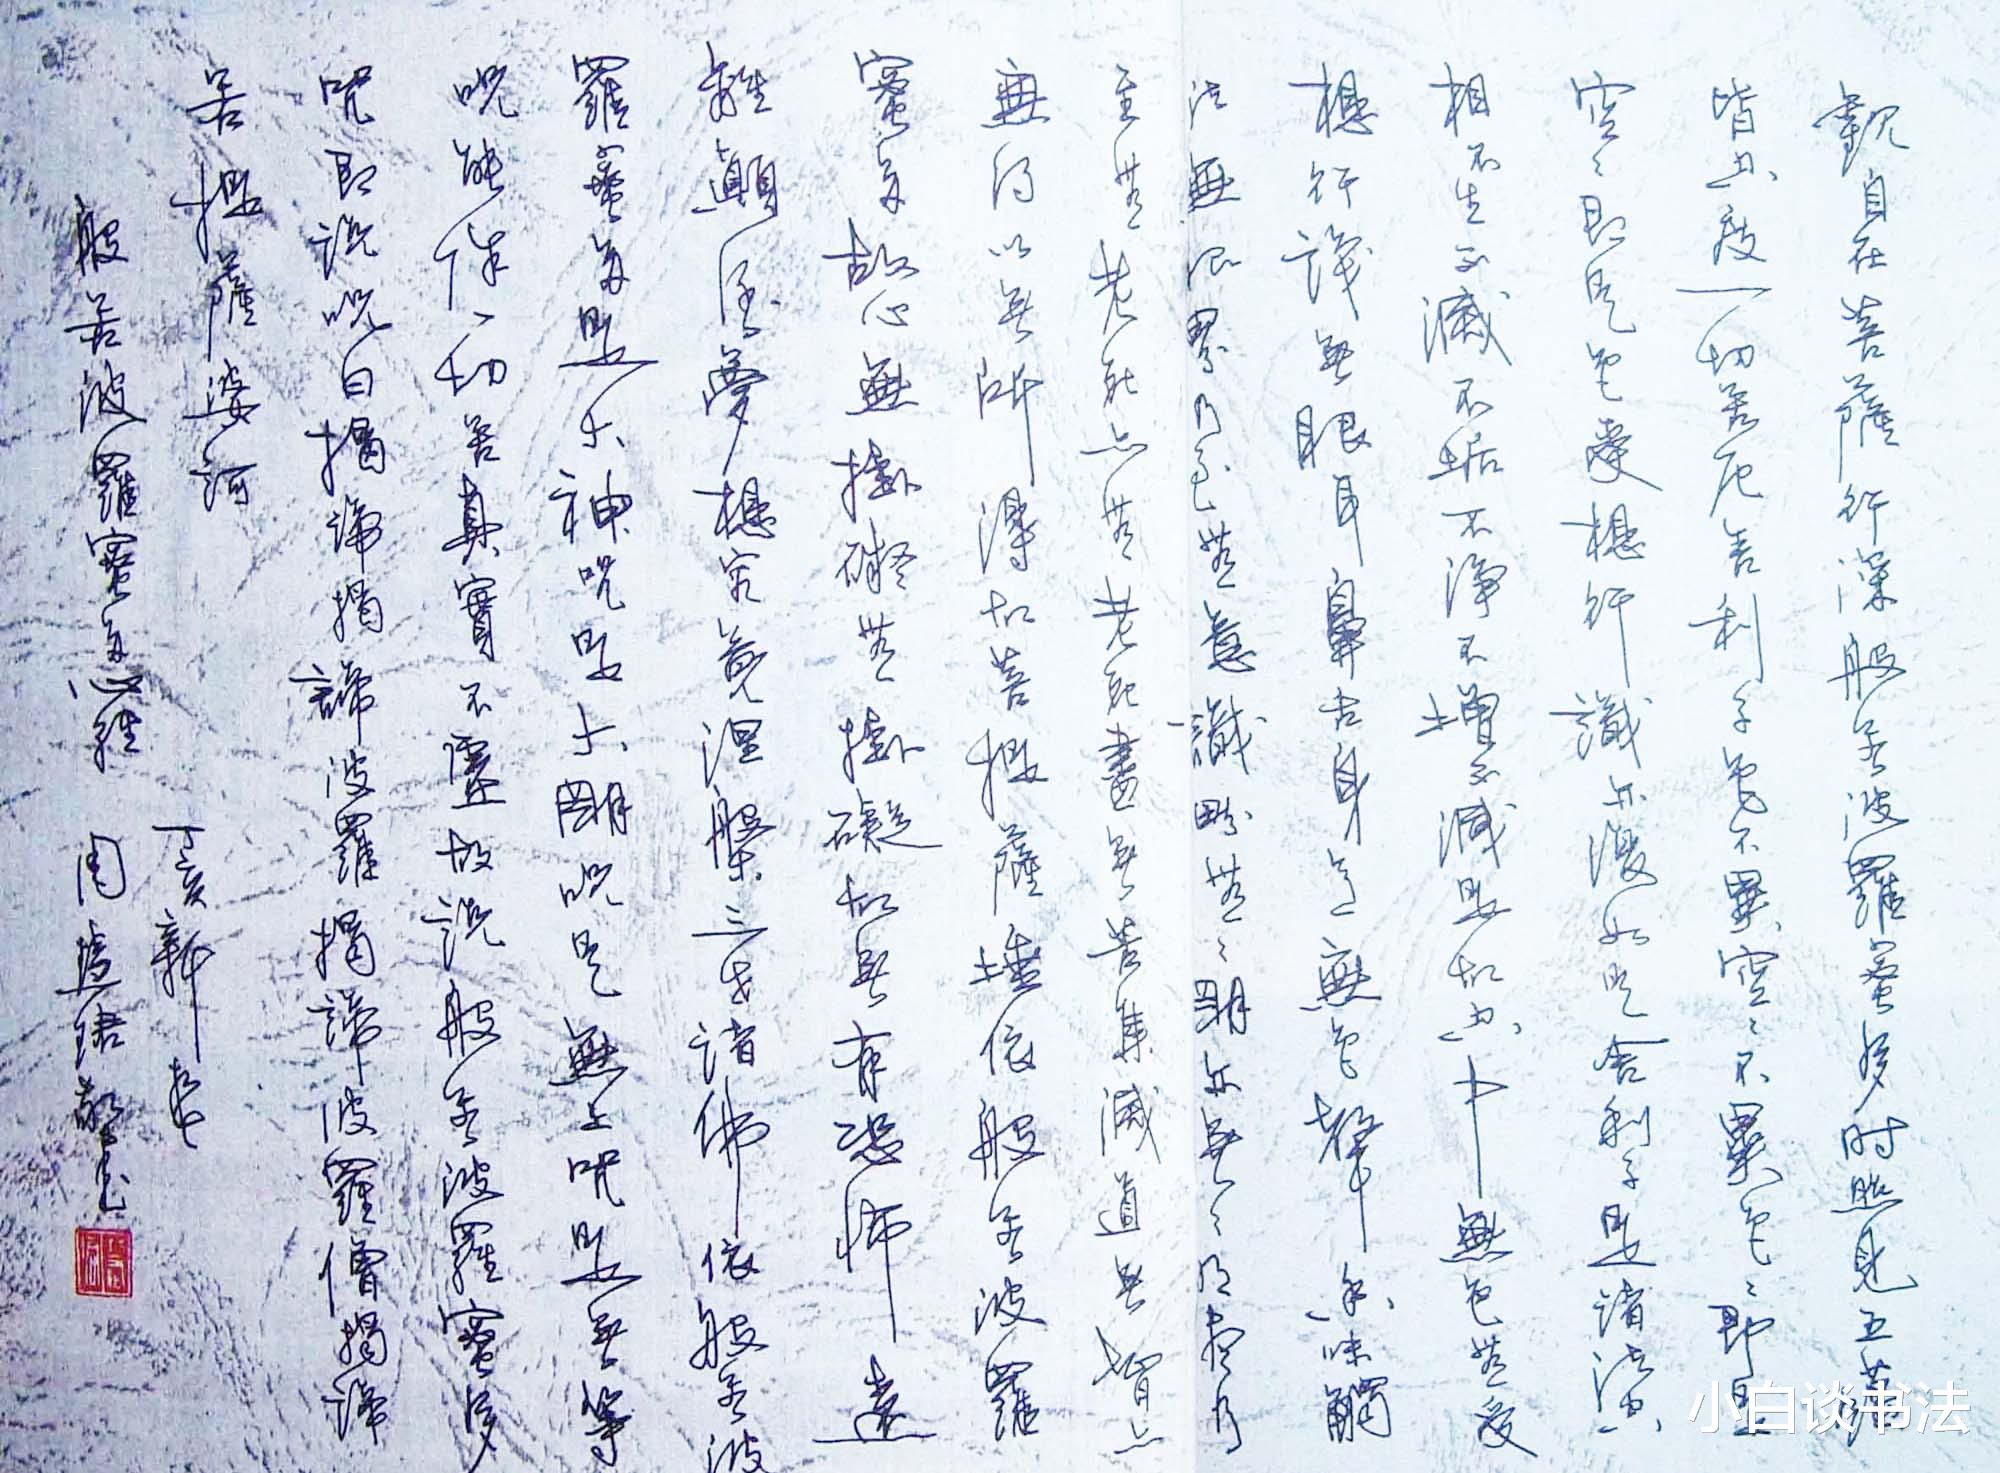 觀自在菩薩行深般若波羅蜜多时照見五蘊
皆空度一切苦厄舍利子色不異空〻不異色〻即是
空〻即是色受想行識亦復如是舍利子是諸法空
相不生不滅不垢不淨不增不減是故空中無色無受
想行識無眼耳鼻舌身意無色聲香味觸
法無眼界乃至無意識界無〻明亦無〻明盡乃
至無老死亦無老死盡無苦集滅道無智亦
無得以無所得故菩提薩埵依般若波羅
蜜多故心無掛礙無掛礙故無有恐怖遠
離顛倒夢想究竟涅槃三世諸佛依般若波
羅蜜多是大神咒是大明咒是無上咒是無等
咒能除一切苦真實不虛故說般若波羅蜜多
咒即說咒曰揭諦揭諦波羅揭諦波羅僧揭諦
菩提薩婆訶
般若波羅蜜多心經
丁亥新春
周敬書
小白谈书法